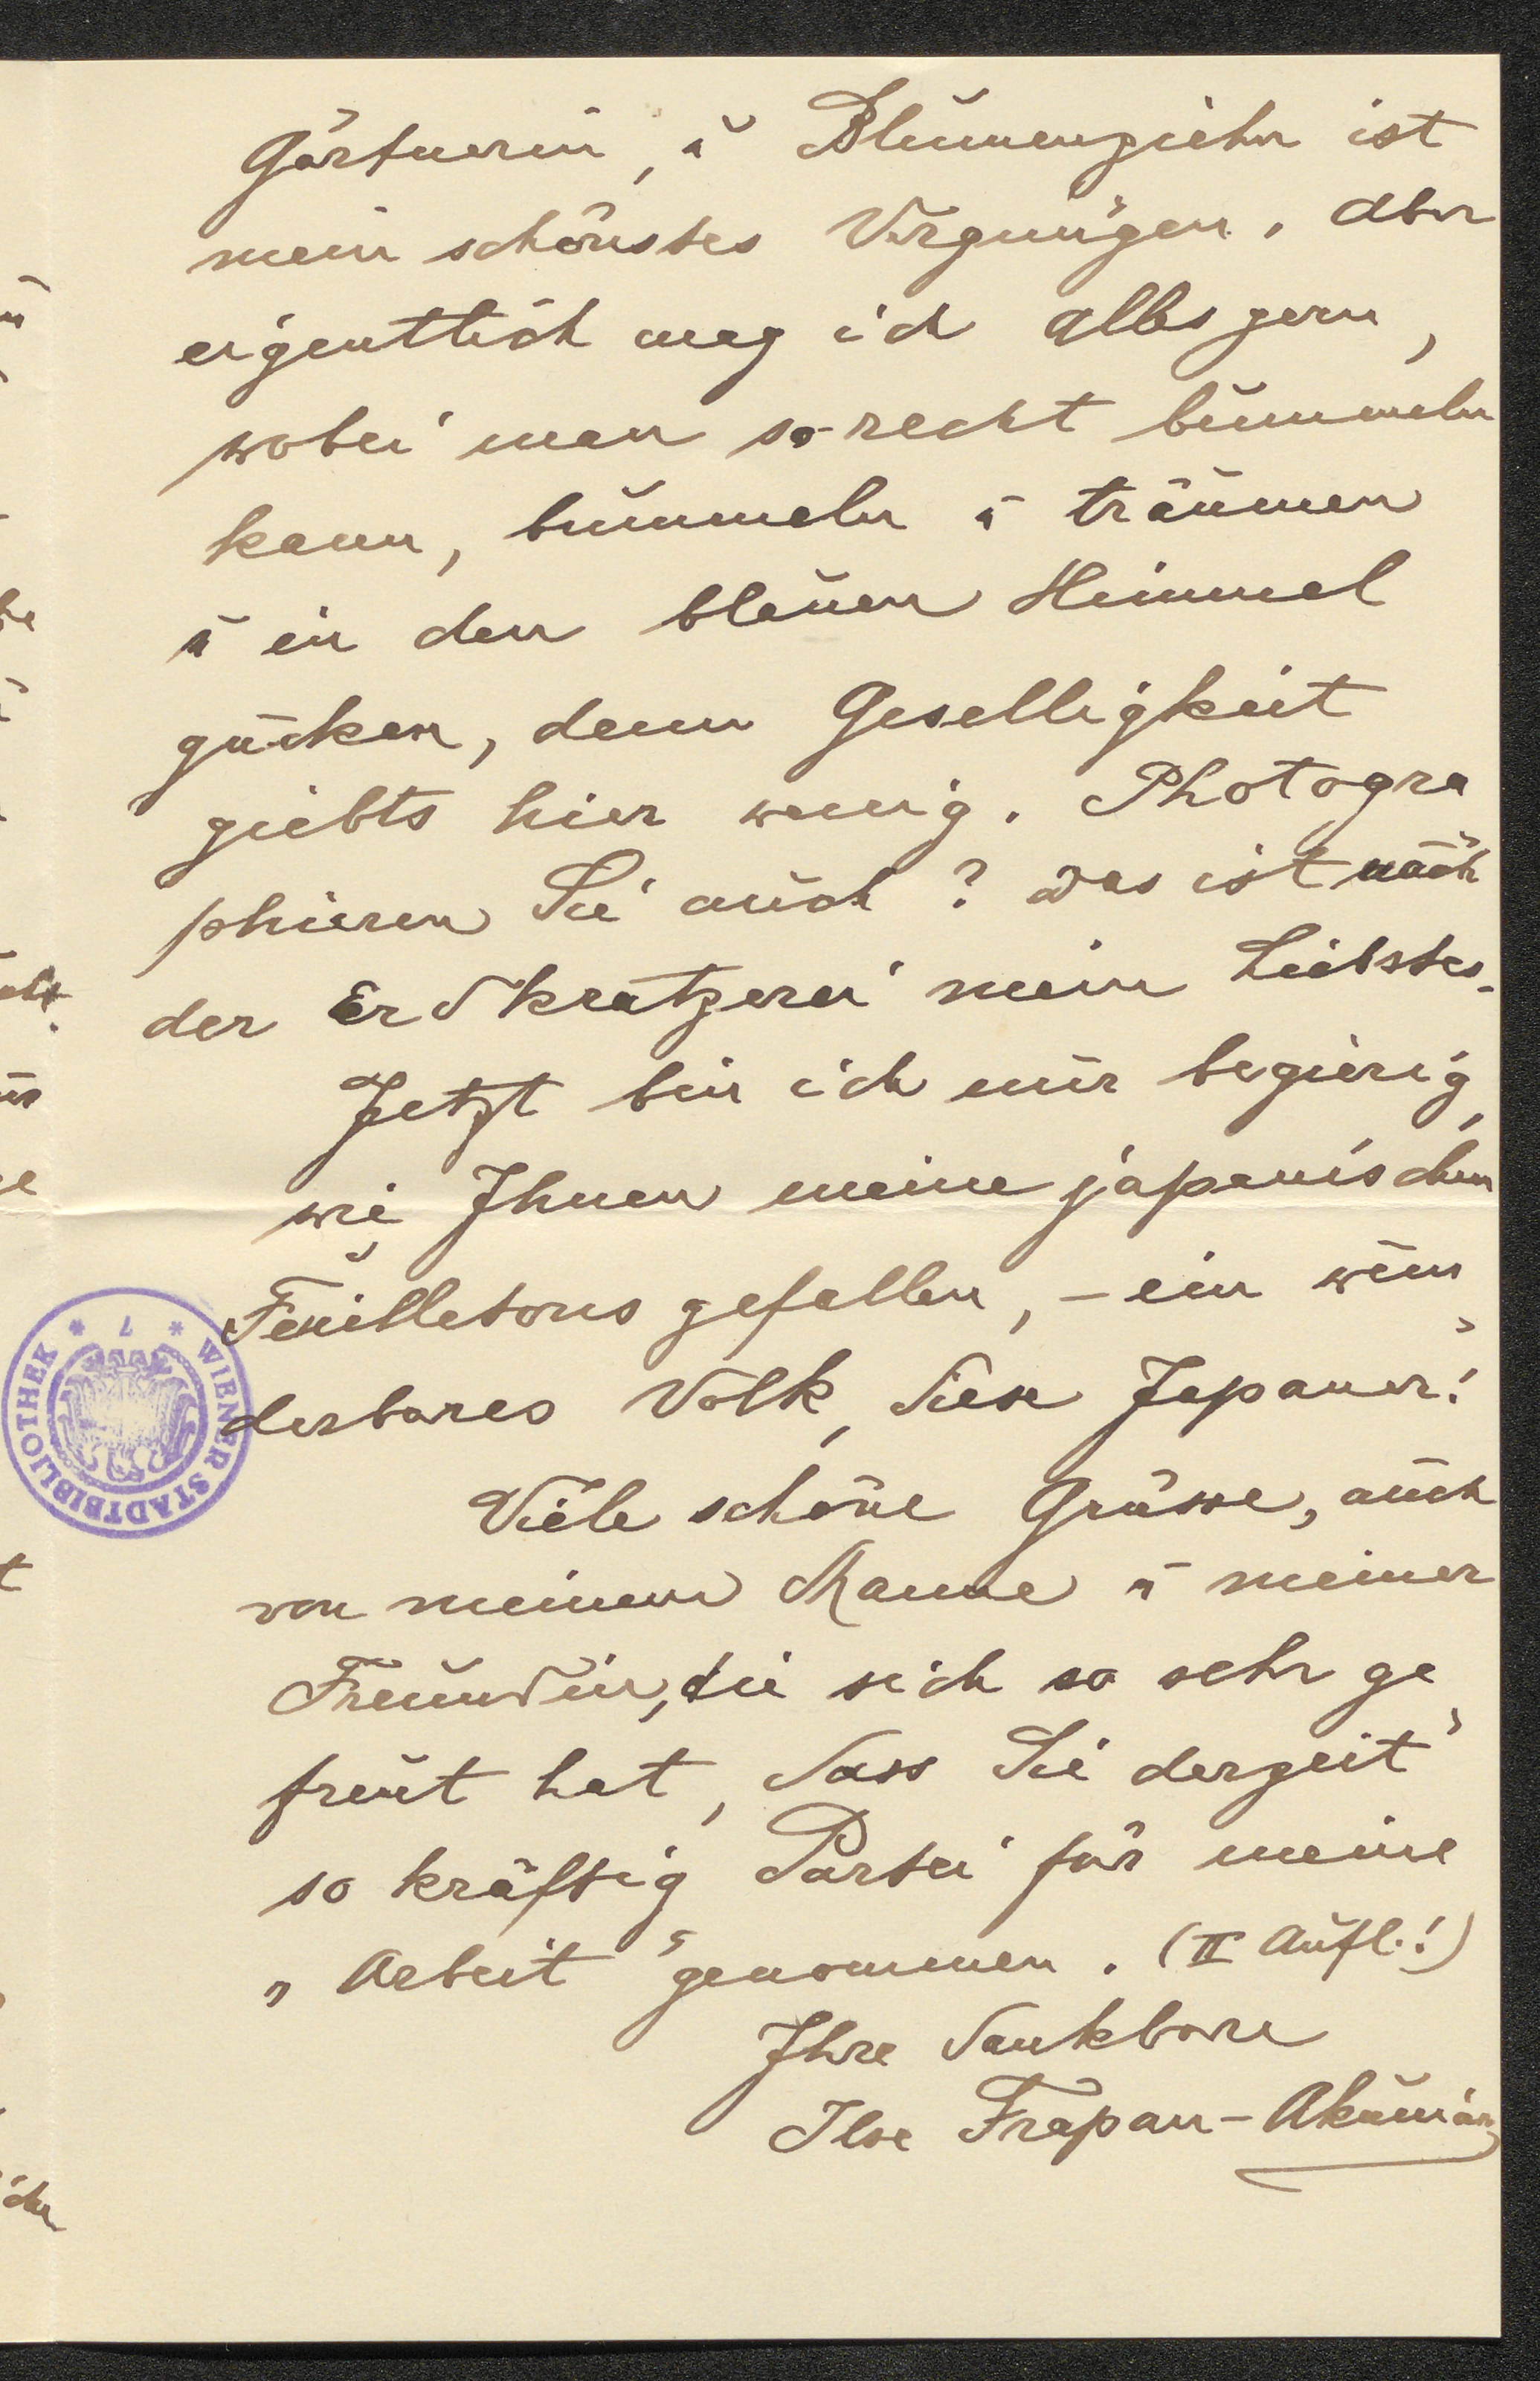 Gärtnerin, u Blumenziehn ist
mein schönstes Vergnügen. Aber
eigentlich mag ich alles gern,
wobei man so recht bummeln
kann, bummeln u träumen
u in den blauen Himmel
gucken, denn Geselligkeit
giebts hier wenig. Photogra
phieren Sie auch? Das ist nach
der Erdkratzerei mein Liebstes.
Jetzt bin ich nur begierig,
wie Ihnen meine japanischen
Feuilletons gefallen, – ein wun
derbares Volk, diese Japaner!
Viele schöne Grüsse, auch
von meinem Manne u meiner
Freundin, die sich so sehr ge
freut hat, dass Sie derzeit
so kräftig Partei für meine
„Arbeit“ genommen. (II Aufl.!)
Ihre dankbare
Ilse Frapan-Akunian
* WIENER STADTBIBLIOTHEK * 7